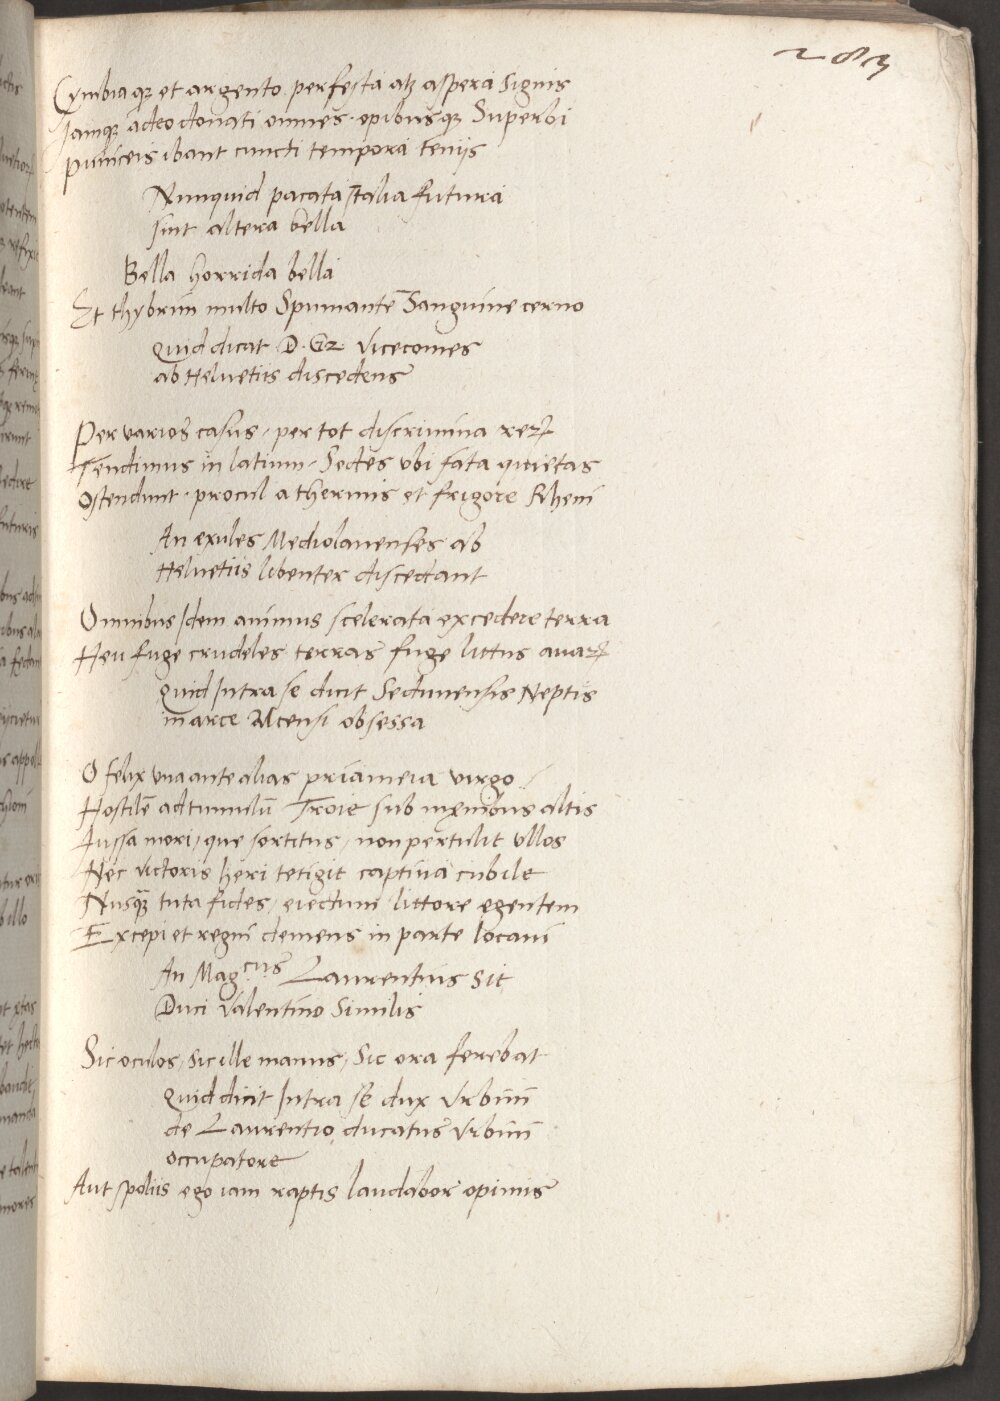 283
Cymbiaqꝫ et argento perfecta atqꝫ aspera signis
Iamqꝫ adeo donati omnes · opibusqꝫ Superbi
puniceis ibant cuncti tempora teniis
Nunquid pacata Italia futura
sint altera bella
Bella horrida bella
Et thybrim multo Spumantē Sanguine cerno
quid dicat D. Gz. Vicecomes
ab Helvetiis discedens
Per varios casus, per tot discrimina reꝝ
Tendimus in latium · Sedes vbi fata quietas
Ostendunt · procul a thermis et frigore Rheni
An exules Mediolanenses ab
Helvetiis libenter discedant
Omnibus Idem animus scelerata excedere terra
Heu fuge crudeles terras fuge littus auaꝝ
quid Intra se dicit Sedunensis Neptis
in arce Arcensi obsessa
O felix vna ante alias priameia virgo
Hostilē ad tumulū Troie sub męnibus altis
Iussa mori, que sortitus, non pertulit vllos
Nec victoris heri tetigit captiua cubile
Nusqꝫ tuta fides, eiectum littore egentem
Excepi et regni demens in parte locaui
An Magcus Laurentius sit
Duci Valentino Similis
Sic oculos, sic ille manus, Sic ora ferebat
quid dicit Intra se dux Vrbini
de Laurentio ducatus Vrbini
occupatore
Aut spoliis ego iam raptis laudabor opimis